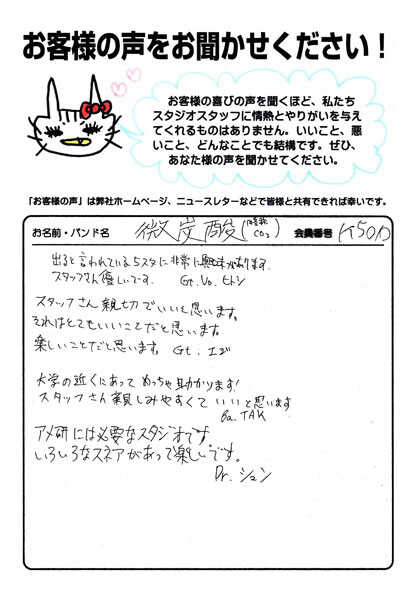 お客様の声をお聞かせください！
お客様の喜びの声を聞くほど、私たち
スタジオスタッフに情熱とやりがいを与え
てくれるものはありません。いいこと、悪
いこと、どんなことでも結構です。ぜひ、
あなた様の声を聞かせてください。
「お客様の声」は弊社ホームページ、ニュースレターなどで皆様と共有できれば幸いです。
お名前・バンド名 微炭酸 CO2 会員番号
出ると言われている5スタに非常に興味があります。
スタッフさん優しいです。 Gt.Vo. ヒトシ
スタッフさん親切でいいと思います。
それはとてもいいことだと思います。
楽しいことだと思います。 Gt.
大学の近くにあってめっちゃ助かります！
スタッフさん親しみやすくていいと思います
Ba. TAK
アメ研には必要なスタジオです
いろいろなスネアがあって楽しいです。
Dr. ション